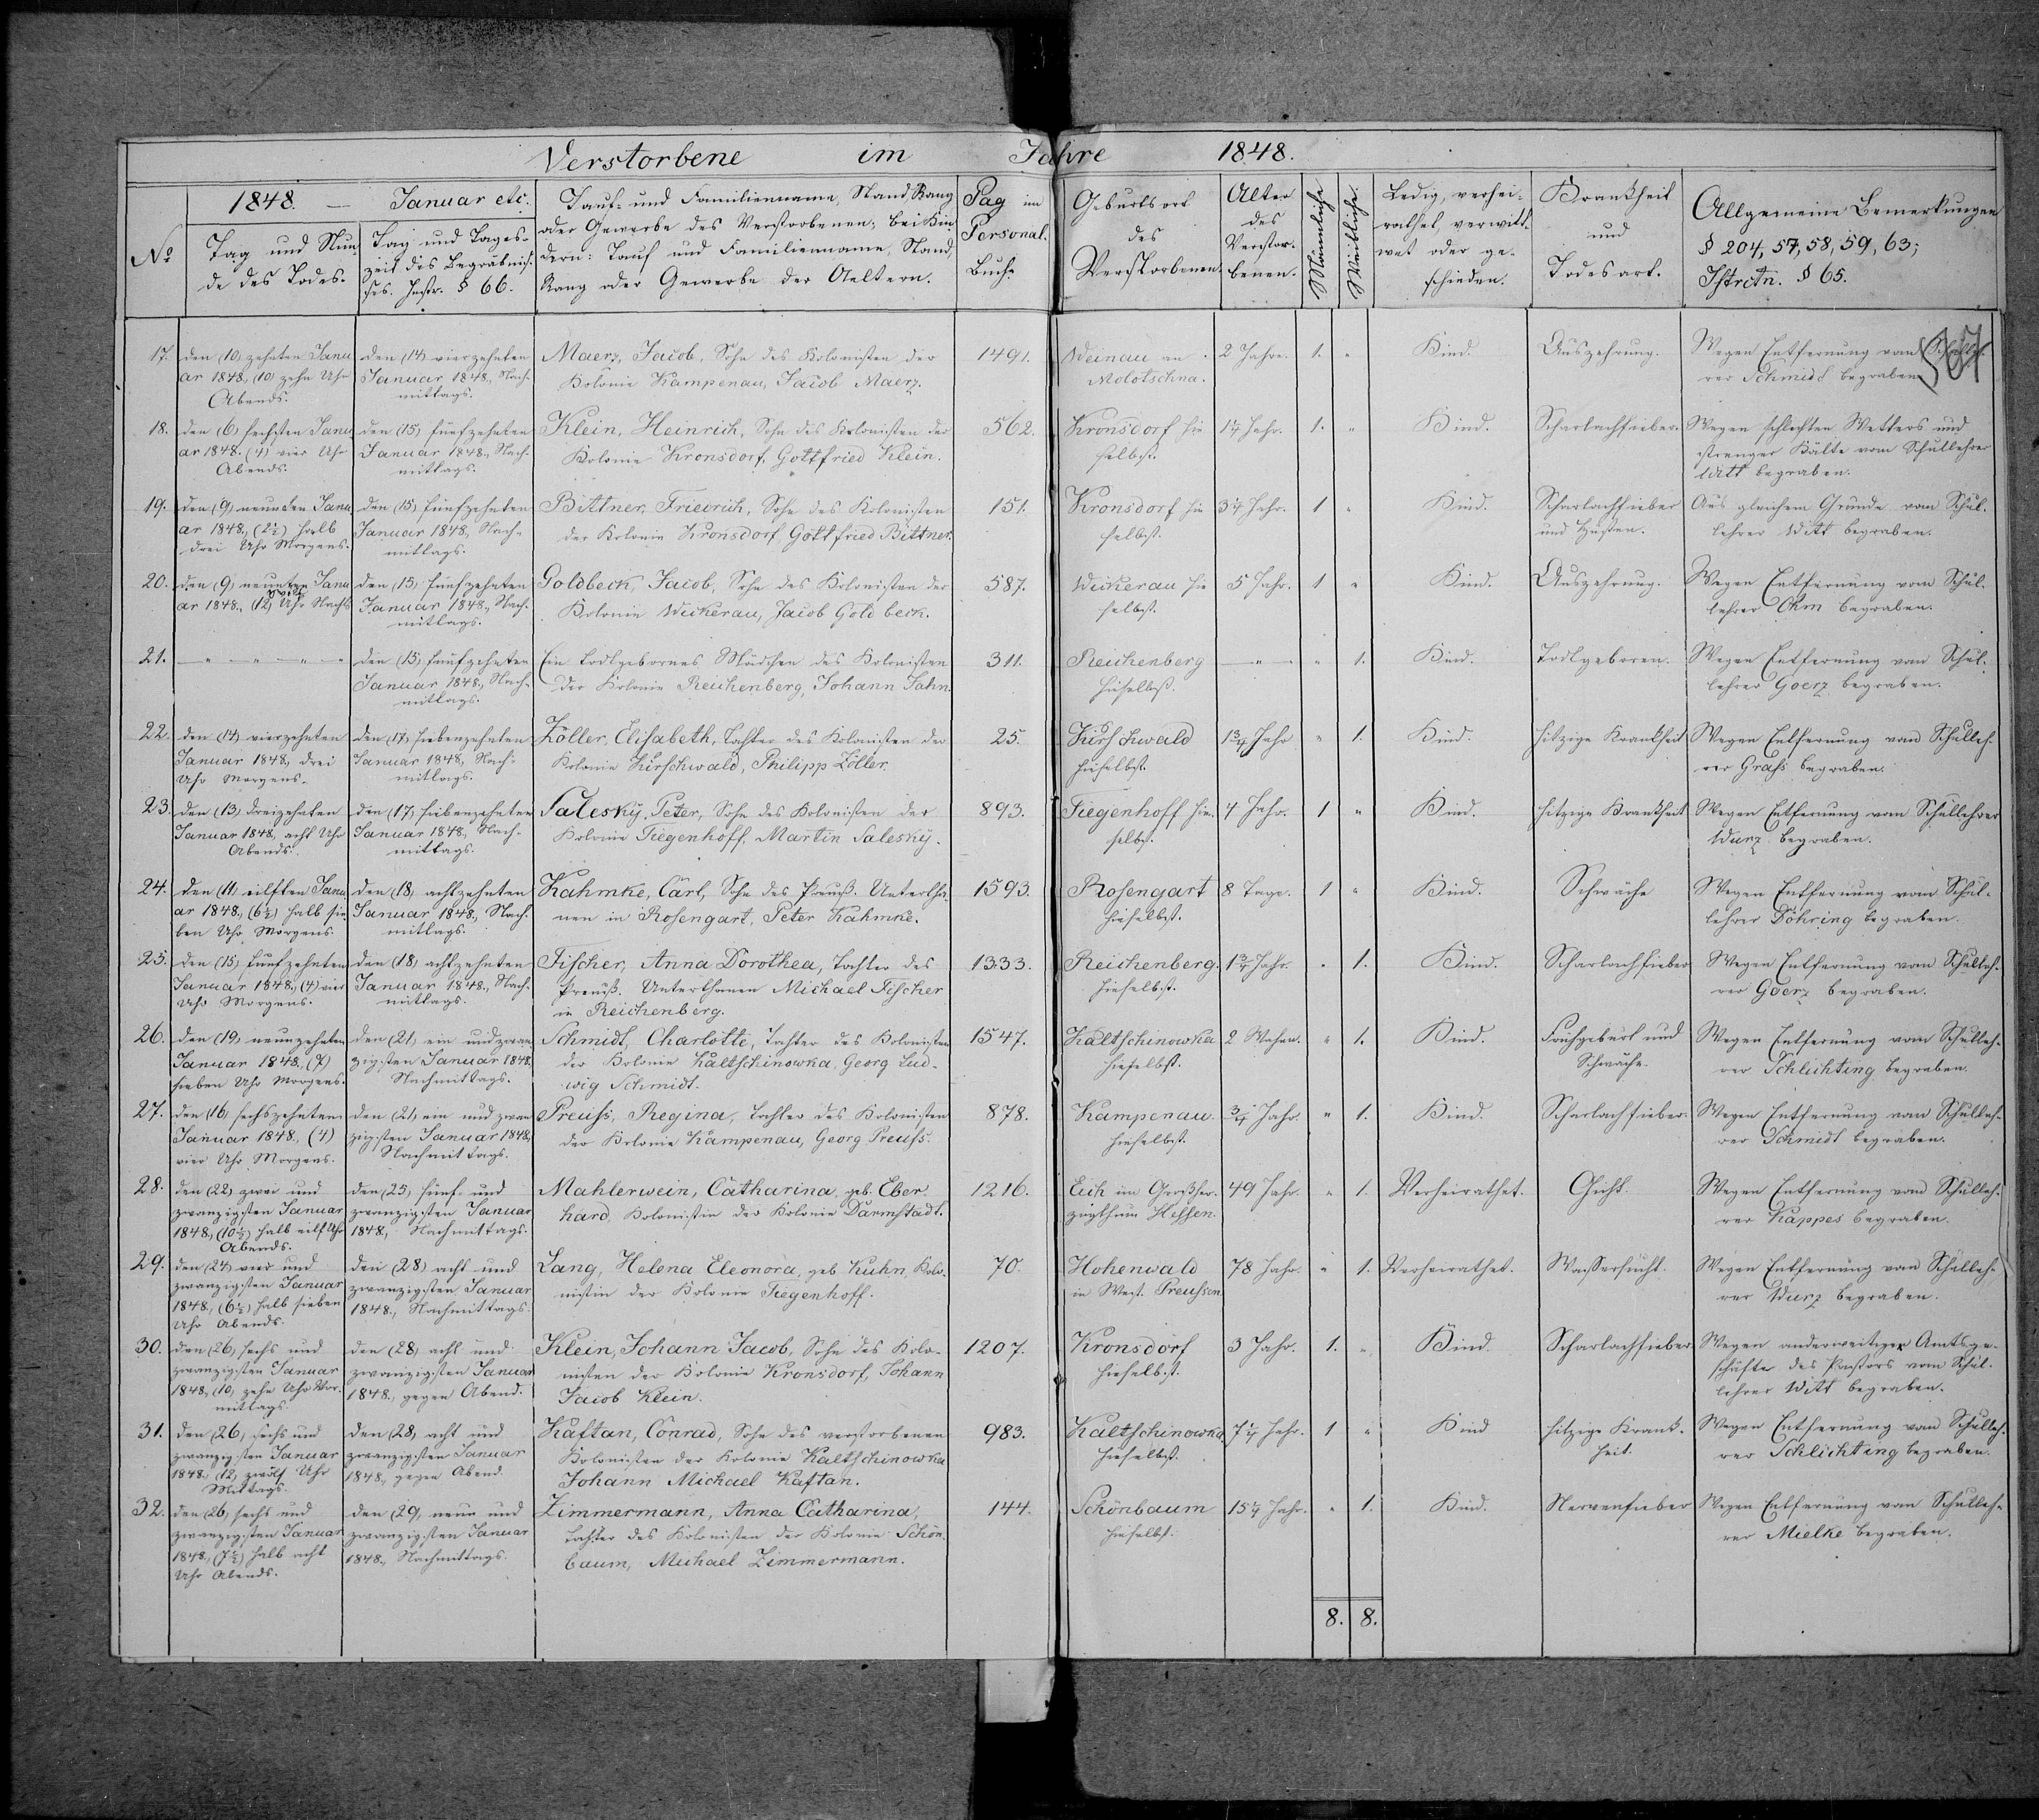 Verstorbene im Jahre 1848.
No
1848. — Januar etc.
Tag und Stun-
de des Todes.
Tag und Tages-
zeit des Begräbnis-
ses. Instr. § 66.
Tauf- und Familienname, Stand, Rang
oder Gewerbe des Verstorbenen; bei Kin-
dern: Tauf und Familienname, Stand,
Rang oder Gewerbe der Aeltern.
Pag im
Personal-
Buch.
Geburtsort
des
Verstorbenen.
Alter
des
Verstor-
benen.
Männliche
Weibliche
Ledig, verhei-
rathet, verwitt-
wet oder ge-
schieden.
Krankheit
und
Todesart.
Allgemeine Bemerkungen
§ 204, 57, 58, 59, 63;
Istrctn. § 65.
17. den (10) zehnten Janu den (14) vierzehnten Maerz, Jacob, Sohn des Kolonisten der 1491. Weinau an 2 Jahre. 1. " Kind. Auszehrung. Wegen Entfernung vom Schulleh-
ar 1848, (10) zehn Uhr Januar 1848, Nach- Kolonie Kampenau, Jacob Maerz. Molotschna. rer Schmidt begraben.
Abends. mittags.
18. den (6) sechsten Janu den (15) fünfzehnten Klein, Heinrich, Sohn des Kolonisten der 562. Kronsdorf hie 1¼ Jahr. 1. " Kind. Scharlachfieber. Wegen schlechten Wetters und
ar 1848. (4) vier Uhr Januar 1848., Nach- Kolonie Kronsdorf, Gottfried Klein. selbst. strenger Kälte vom Schullehrer
Abends. mittags. Witt begraben.
19. den (9) neunten Janu den (15) fünfzehnten Bittner, Friedrich, Sohn des Kolonisten 151. Kronsdorf hie 3¼ Jahr. 1 " Kind. Scharlachfieber Aus gleichem Grunde vom Schul-
ar 1848., (2½) halb Januar 1848, Nach- der Kolonie Kronsdorf, Gottfried Bittner. selbst. und Husten. lehrer Witt begraben.
drei Uhr Morgens. mittags.
20. den (9) neunten Janu den (15) fünfzehnten Goldbeck, Jacob, Sohn des Kolonisten der 587. Wickerau hie 5 Jahr. 1 " Kind. Auszehrung. Wegen Entfernung vom Schul-
ar 1848., (12) zwölf Uhr Nachts Januar 1848., Nach- Kolonie Wickerau, Jacob Goldbeck. selbst. lehrer Ohm begraben.
mittags.
21. — " — " — " — " den (15) fünfzehnten Ein todtgebornes Mädchen des Kolonisten 311. Reichenberg — " — " 1. Kind. Todtgeboren. Wegen Entfernung vom Schul-
Januar 1848., Nach- der Kolonie Reichenberg, Johann Jahn. hieselbst. lehrer Goerz begraben.
mittags.
22. den (14) vierzehnten den (17) siebenzehnten Zöller, Elisabeth, Tochter des Kolonisten der 25. Hirschwald 1¾ Jahr " 1. Kind. hitzige Krankheit Wegen Entfernung vom Schulleh-
Januar 1848, drei Januar 1848, Nach- Kolonie Hirschwald, Philipp Zöller. hieselbst. rer Grass begraben.
Uhr Morgens. mittags.
23. den (13) dreizehnten den (17) siebenzehnten Salesky, Peter, Sohn des Kolonisten der 893. Tiegenhoff hie- 4 Jahr. 1 " Kind. hitzige Krankheit Wegen Entfernung vom Schullehrer
Januar 1848, acht Uhr Januar 1848, Nach- Kolonie Tiegenhoff, Martin Salesky. selbst. Wurz begraben.
Abends. mittags.
24. den (11) eilften Janu den (18) achtzehnten Kahmke, Carl, Sohn des Preuß. Untertha- 1593. Rosengart 8 Tage. 1 " Kind. Schwäche Wegen Entfernung vom Schul-
ar 1848., (6½) halb sie- Januar 1848., Nach- nen in Rosengart, Peter Kahmke. hieselbst. lehrer Döhring begraben.
ben Uhr Morgens. mittags.
25. den (15) fünfzehnten den (18) achtzehnten Fischer, Anna Dorothea, Tochter des 1333. Reichenberg. 1¾ Jahr. " 1. Kind. Scharlachfieber Wegen Entfernung vom Schulleh-
Januar 1848., (4) vier Januar 1848., Nach- Preuß. Unterthanen Michael Fischer hieselbst. rer Goerz begraben.
Uhr Morgens. mittags. in Reichenberg.
26. den (19) neunzehnten den (21) ein und zwan Schmidt, Charlotte, Tochter des Kolonisten 1547. Kaltschinowka 2 Wochen. " 1. Kind. Frühgeburt und Wegen Entfernung vom Schulleh-
Januar 1848, (7) zigsten Januar 1848, der Kolonie Kaltschinowka, Georg Lud- hieselbst. Schwäche rer Schlichting begraben.
sieben Uhr Morgens. Nachmittags. wig Schmidt.
27. den (16) sechszehnten den (21) ein und zwan Preuss, Regina, Tochter des Kolonisten 878. Kampenau ¾ Jahr. " 1. Kind. Scharlachfieber. Wegen Entfernung vom Schulleh-
Januar 1848, (4) zigsten Januar 1848, der Kolonie Kampenau, Georg Preuss. hieselbst. rer Schmidt begraben.
vier Uhr Morgens. Nachmittags.
28. den (22) zwei und den (25) fünf und Mahlerwein, Catharina, geb. Eber- 1216. Eich im Großher- 49 Jahr. " 1. Verheirathet. Gicht. Wegen Entfernung vom Schulleh-
zwanzigsten Januar zwanzigsten Januar hard, Kolonistin der Kolonie Darmstadt. zogthum Hessen. rer Kappes begraben.
1848, (10½) halb eilf Uhr 1848., Nachmittags.
Abends.
29. den (24) vier und den (28) acht und Lang, Helena Eleonora, geb. Kuhn, Kolo- 70. Hohenwald 78 Jahr. " 1. Verheirathet. Wassersucht. Wegen Entfernung vom Schulleh-
zwanzigsten Januar zwanzigsten Januar nistin der Kolonie Tiegenhoff. in West. Preussen rer Wurz begraben.
1848., (6½) halb sieben 1848., Nachmittags
Uhr Abends.
30. den (26) sechs und den (28) acht und Klein, Johann Jacob, Sohn des Kolo- 1207. Kronsdorf 3 Jahr. 1. " Kind Scharlachfieber Wegen anderweitiger Amtsge-
zwanzigsten Januar zwanzigsten Januar nisten der Kolonie Kronsdorf, Johann hieselbst. schäfte des Pastors vom Schul-
1848, (10) zehn Uhr Vor- 1848., gegen Abend. Jacob Klein. lehrer Witt begraben.
mittags.
31. den (26) sechs und den (28) acht und Kaftan, Conrad, Sohn des verstorbenen 983. Kaltschinowka 7¼ Jahr. 1 " Kind hitzige Krank- Wegen Entfernung vom Schulleh-
zwanzigsten Januar zwanzigsten Januar Kolonisten der Kolonie Kaltschinowka hieselbst. heit. rer Schlichting begraben.
1848, (12) zwölf Uhr 1848., gegen Abend. Johann Michael Kaftan.
Mittags.
32. den (26) sechs und den (29) neun und Zimmermann, Anna Catharina, 144. Schönbaum 15¼ Jahr. " 1. Kind. Nervenfieber Wegen Entfernung vom Schulleh-
zwanzigsten Januar zwanzigsten Januar Tochter des Kolonisten der Kolonie Schön- hieselbst. rer Mielke begraben.
1848., (7½) halb acht 1848., Nachmittags. baum, Michael Zimmermann.
Uhr Abends.
8. 8.